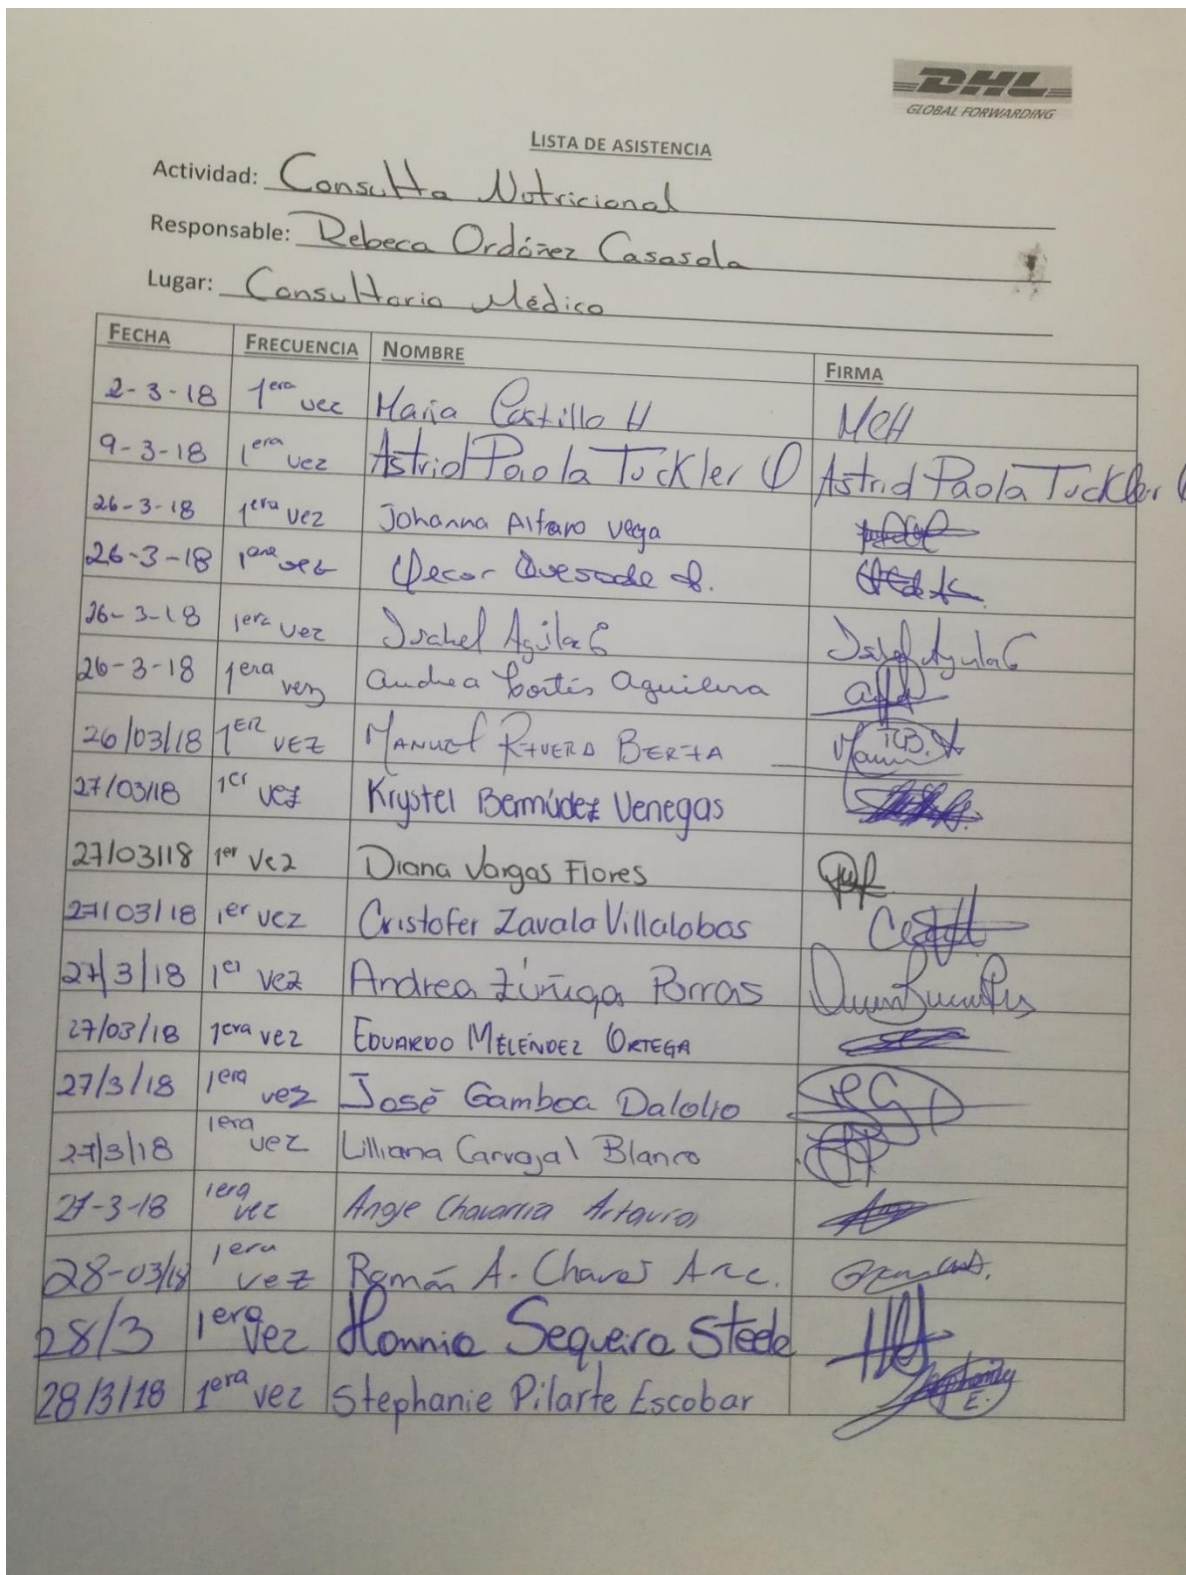 DHL
GLOBAL FORWARDING
LISTA DE ASISTENCIA
Actividad: Consulta Nutricional
Responsable: Rebeca Ordóñez Casasola
Lugar: Consultorio Médico
FECHA FRECUENCIA NOMBRE FIRMA
2-3-18 1era vez María Castillo H MCH
9-3-18 1era vez Astrid Paola Tuckler Astrid Paola Tuckler
26-3-18 1era vez Johanna Alfaro Vega
26-3-18 1era vez Quesada
26-3-18 1era vez Isabel Aguilar C Isabel Aguilar C
26-3-18 1era vez Andrea Cortés Aguilera
26/03/18 1ER VEZ MANUEL RIVERA
27/03/18 1er vez Krystel Bermúdez Venegas
27/03/18 1er vez Diana Vargas Flores
27/03/18 1er vez Cristofer Zavala Villalobos
27/3/18 1er vez Andrea Zúñiga Porras
27/03/18 1era vez EDUARDO MELÉNDEZ ORTEGA
27/3/18 1era vez José Gamboa Dalolio
27/3/18 1era vez Lilliana Carvajal Blanco
27-3-18 1era vez Angie Chavarría Artavia
28-03/18 1era vez Román A. Chaves
28/3 1era vez Sequeira Steele
28/3/18 1era vez Stephanie Pilarte Escobar